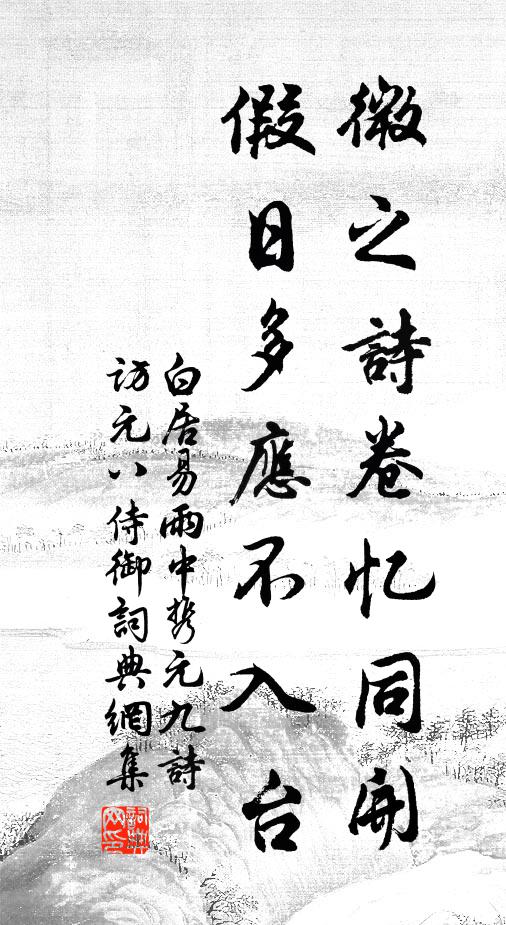 微之詩卷忆同開
假日多應不入台
白居易雨中携元九詩
访元八侍御詞典網集